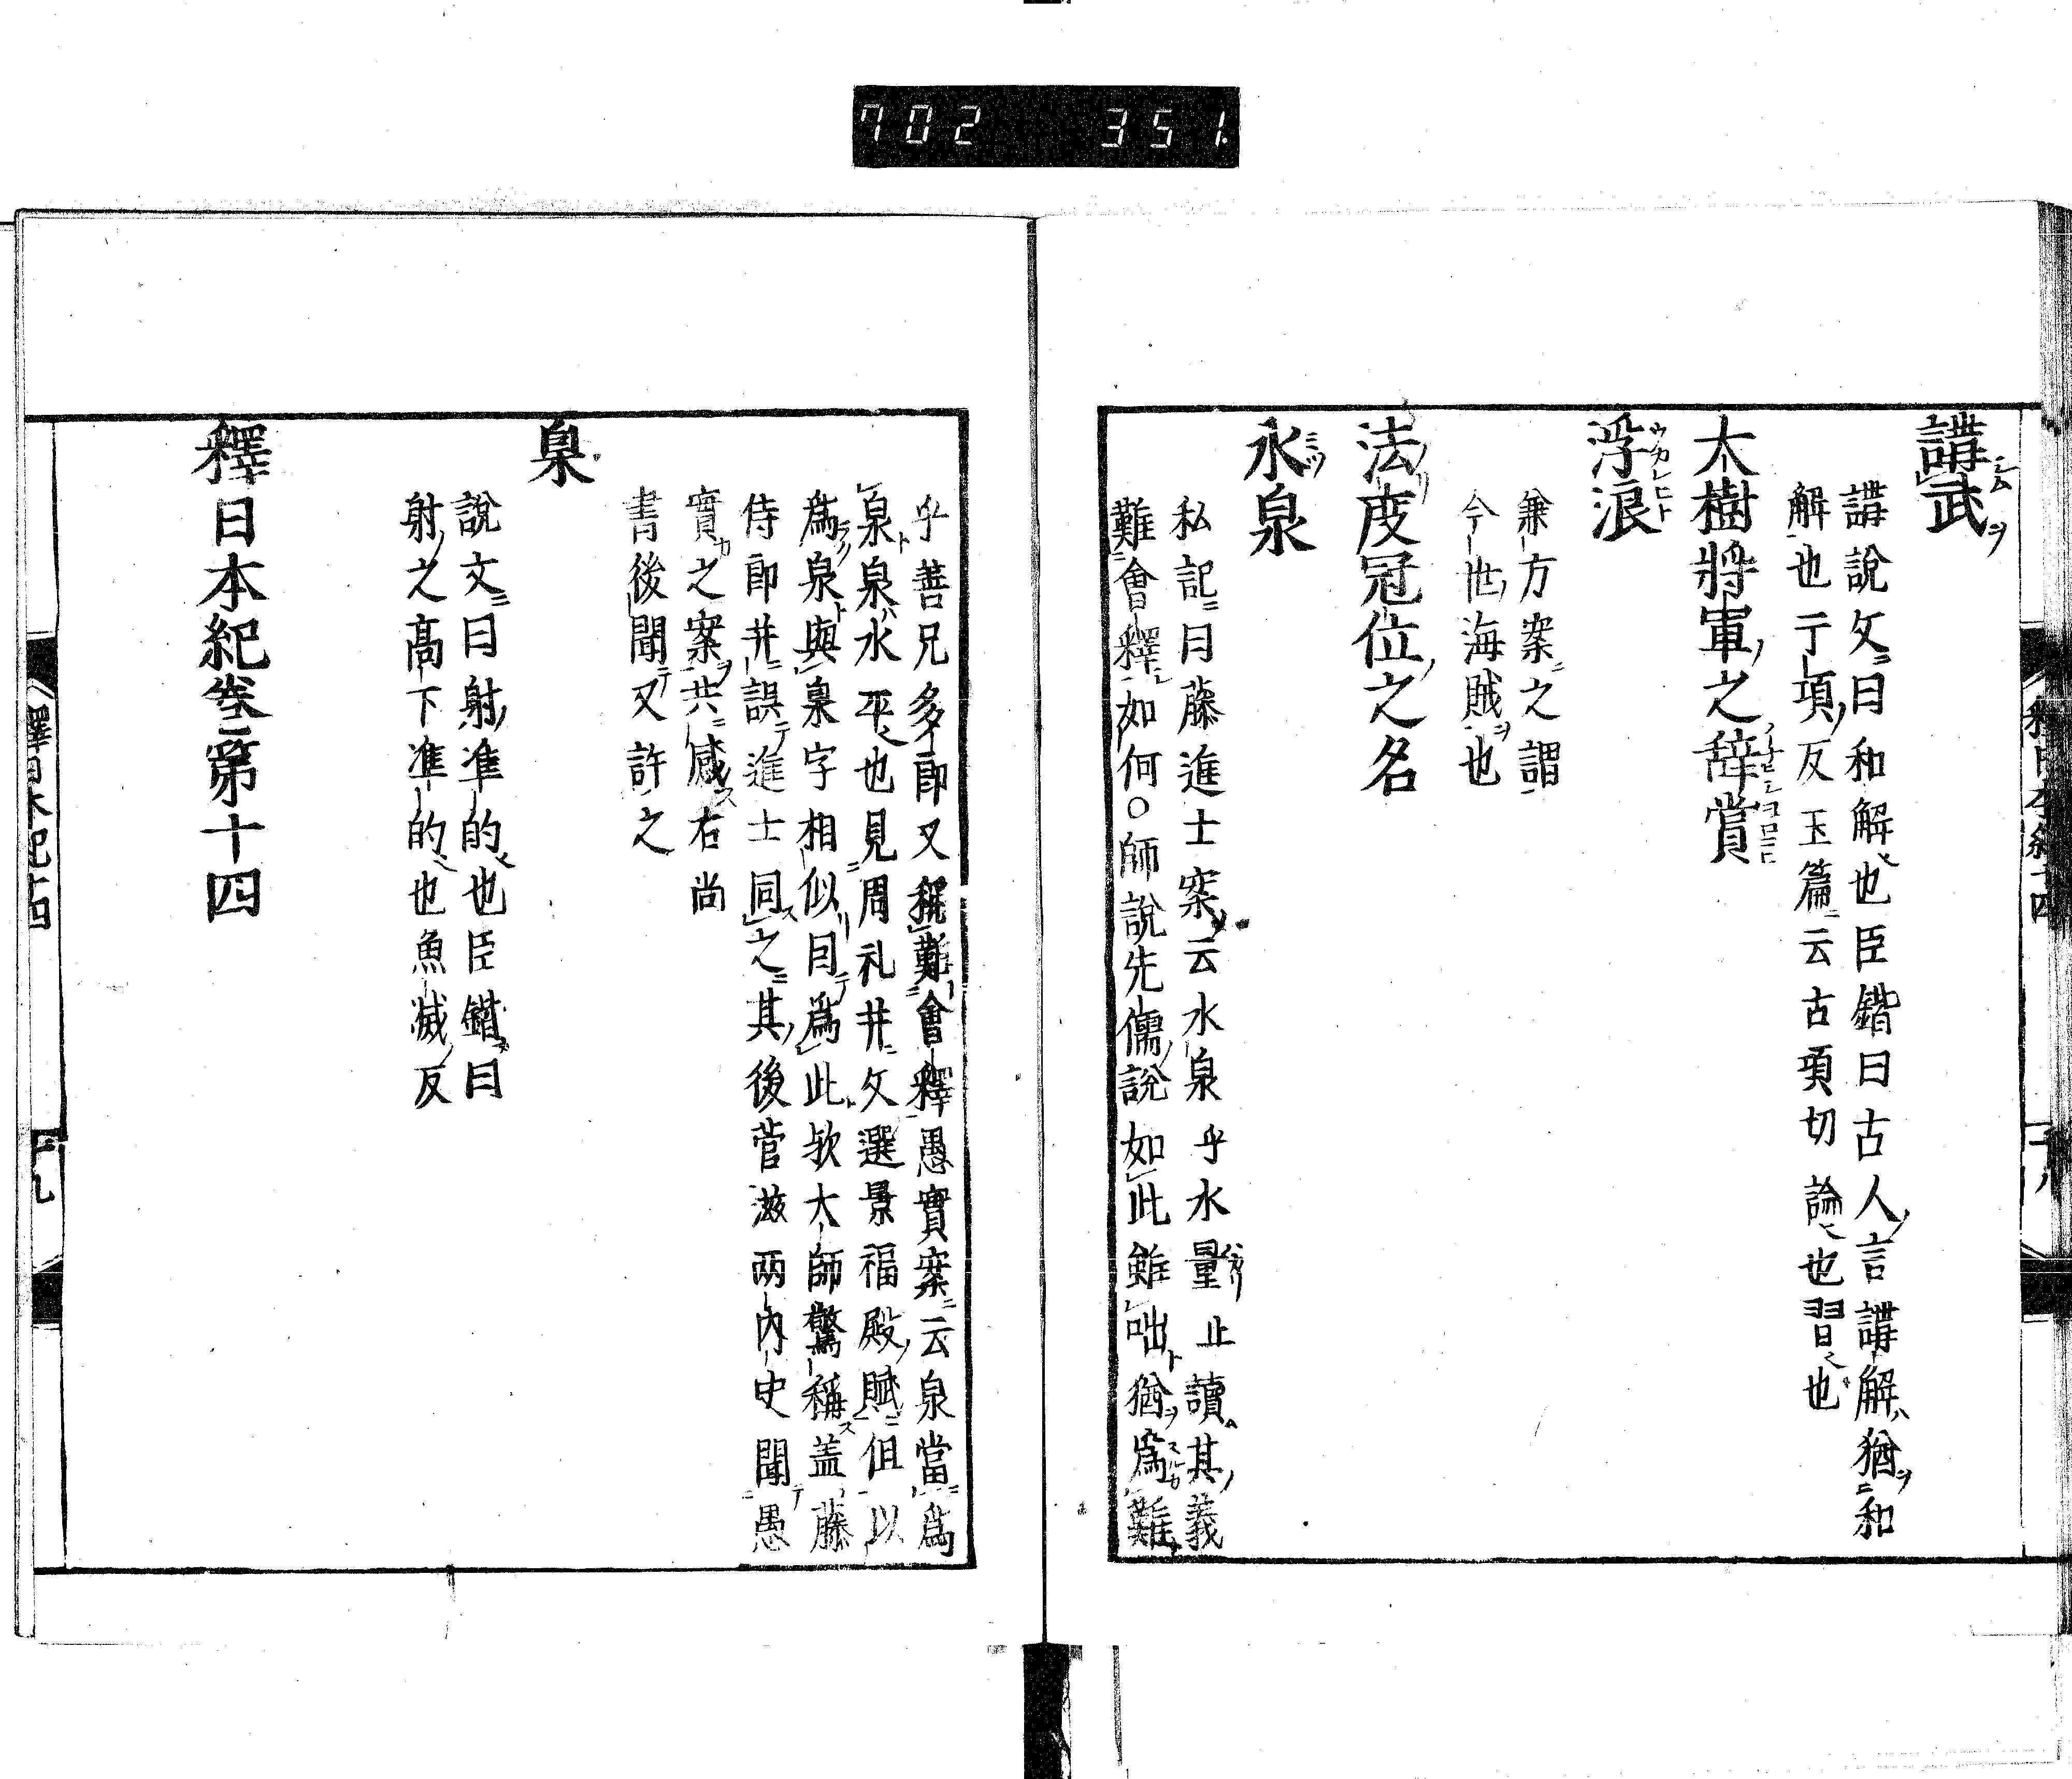 702 351
講武
講説文曰和解也臣鍇曰古人言講解猶和
解也亍項反玉篇云古項切論也習也
大樹將軍之辞賞
浮浪
兼方案之謂
今世海賊也
法度冠位之名
水泉
私記曰藤進士案云水泉乎水量止讀其義
難會釋如何○師説先儒説如此雖咄猶爲難
乎善兄多即又稱難會釋愚實案云泉當爲
泉泉水平也見周礼井文選景福殿賦但以
爲泉與臬字相似目爲此欤大師驚稱盖藤
侍郎井誤進士同之其後菅滋两内史聞愚
實之案共感右尚
書後聞又許之
臬
說文曰射準的也臣鍇曰
射之高下準的也魚滅反
釋日本紀卷第十四
釋日本紀十四
十九